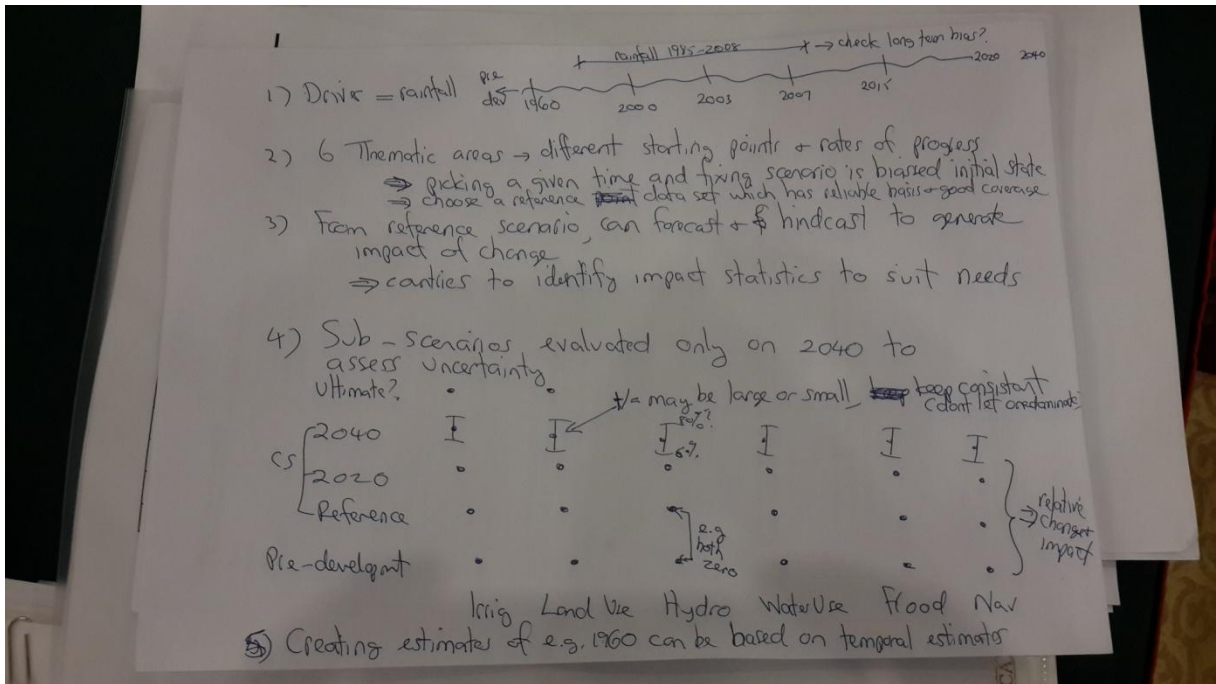 rainfall 1985-2008 → check long term bias?
1) Driver = rainfall pre dev 1960 2000 2003 2007 2015 2020 2040
2) 6 Thematic areas → different starting points + rates of progress
⇒ picking a given time and fixing scenario is biassed initial state
→ choose a reference data set which has reliable basis + good coverage
3) From reference scenario, can forecast + hindcast to generate
impact of change
⇒ contries to identify impact statistics to suit needs
4) Sub-scenarios evaluated only on 2040 to
assess uncertainty
Ultimate? +/- may be large or small, keep consistant
(dont let one dominate
CS 2040
2020
Reference
Pre-develpmt e.g both zero
⇒ relative change + impact
Irrig Land Use Hydro Water Use Flood Nav
5) Creating estimates of e.g. 1960 can be based on temporal estimates